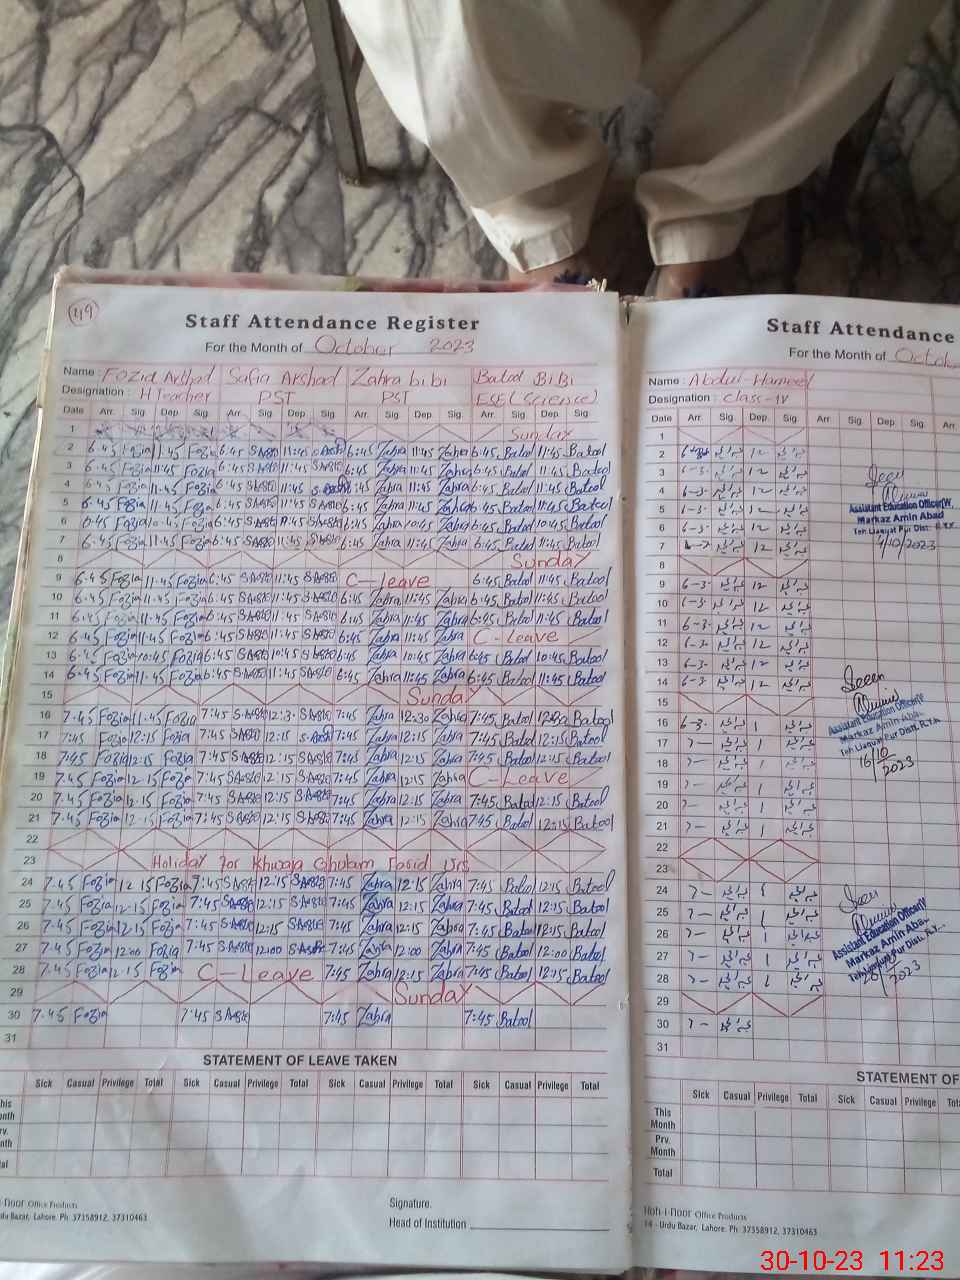 49
Staff Attendance Register
For the Month of October 2023
Name : Fozia Arshad Safia Arshad Zahra bibi Batool BiBi
Designation : H Teacher PST PST ESE (Science)
Date Arr. Sig. Dep. Sig. Arr. Sig. Dep. Sig. Arr. Sig. Dep. Sig. Arr. Sig. Dep. Sig.
1 Sunday
2 6:45 Fozia 11:45 Fozia 6:45 11:45 6:45 Zahra 11:45 Zahra 6:45 Batool 11:45 Batool
3 6:45 Fozia 11:45 Fozia 6:45 11:45 6:45 Zahra 11:45 Zahra 6:45 Batool 11:45 Batool
4 6:45 Fozia 11:45 Fozia 6:45 11:45 6:45 Zahra 11:45 Zahra 6:45 Batool 11:45 Batool
5 6:45 Fozia 11:45 Fozia 6:45 11:45 6:45 Zahra 11:45 Zahra 6:45 Batool 11:45 Batool
6 6:45 Fozia 10:45 Fozia 6:45 6:45 Zahra 10:45 Zahra 6:45 Batool 10:45 Batool
7 6:45 Fozia 11:45 Fozia 6:45 11:45 6:45 Zahra 11:45 Zahra 6:45 Batool 11:45 Batool
8 Sunday
9 6:45 Fozia 11:45 Fozia 6:45 11:45 C-leave 6:45 Batool 11:45 Batool
10 6:45 Fozia 11:45 Fozia 6:45 11:45 6:45 Zahra 11:45 Zahra 6:45 Batool 11:45 Batool
11 6:45 Fozia 11:45 Fozia 6:45 11:45 6:45 Zahra 11:45 Zahra 6:45 Batool 11:45 Batool
12 6:45 Fozia 11:45 Fozia 6:45 11:45 6:45 Zahra 11:45 Zahra C-Leave
13 6:45 Fozia 10:45 Fozia 6:45 10:45 6:45 Zahra 10:45 Zahra 6:45 Batool 10:45 Batool
14 6:45 Fozia 11:45 Fozia 6:45 11:45 6:45 Zahra 11:45 Zahra 6:45 Batool 11:45 Batool
15 Sunday
16 7:45 Fozia 11:45 Fozia 7:45 12:3- 7:45 Zahra 12:30 Zahra 7:45 Batool 12:30 Batool
17 7:45 Fozia 12:15 Fozia 7:45 12:15 7:45 Zahra 12:15 Zahra 7:45 Batool 12:15 Batool
18 7:45 Fozia 12:15 Fozia 7:45 12:15 7:45 Zahra 12:15 Zahra 7:45 Batool 12:15 Batool
19 7:45 Fozia 12:15 Fozia 7:45 12:15 7:45 Zahra 12:15 Zahra C-Leave
20 7:45 Fozia 12:15 Fozia 7:45 12:15 7:45 Zahra 12:15 Zahra 7:45 Batool 12:15 Batool
21 7:45 Fozia 12:15 Fozia 7:45 12:15 7:45 Zahra 12:15 Zahra 7:45 Batool 12:15 Batool
22
23 Holiday for Khwaja Ghulam Farid
24 7:45 Fozia 12:15 Fozia 7:45 12:15 7:45 Zahra 12:15 Zahra 7:45 Batool 12:15 Batool
25 7:45 Fozia 12:15 Fozia 7:45 12:15 7:45 Zahra 12:15 Zahra 7:45 Batool 12:15 Batool
26 7:45 Fozia 12:15 Fozia 7:45 12:15 7:45 Zahra 12:15 Zahra 7:45 Batool 12:15 Batool
27 7:45 Fozia 12:00 Fozia 7:45 12:00 7:45 Zahra 12:00 Zahra 7:45 Batool 12:00 Batool
28 7:45 Fozia 12:15 Fozia C-Leave 7:45 Zahra 12:15 Zahra 7:45 Batool 12:15 Batool
29 Sunday
30 7:45 Fozia 7:45 7:45 Zahra 7:45 Batool
31
STATEMENT OF LEAVE TAKEN
Sick Casual Privilege Total Sick Casual Privilege Total Sick Casual Privilege Total Sick Casual Privilege Total
Office Products
Bazar, Lahore. Ph: 37358912, 37310463
Signature.
Head of Institution
Staff Attendance
For the Month of
Name : Abdul Hameed
Designation : Class-IV
Date Arr. Sig. Dep. Sig. Arr. Sig. Dep. Sig. Arr.
1
2 12
3 6-3- 12
4 6-3- 12
5 6-3- 12
6 6-3- 12
7 12
8
9 6-3- 12
10 6-3- 12
11 6-3- 12
12 6-3- 12
13 6-3- 12
14 6-3- 12
15
16 1
17 7- 1
18 7- 1
19 7- 1
20 7- 1
21 7- 1
22
23
24 7- 1
25 7- 1
26 7- 1
27 7- 1
28 7- 1
29
30 7-
31
Seen
Assistant Education Officer(W.
Markaz Amin Abad
Teh Liaquat Pur Dist:
4/10/2023
Seen
Assistant Education Officer(W
Markaz Amin Aba
Teh Liaquat Pur Distt.
16/10/2023
Seen
Assistant Education Officer(W
Markaz Amin Aba
Teh Liaquat Pur Distt.
2023
STATEMENT OF
Sick Casual Privilege Total Sick Casual Privilege
This Month
Prv. Month
Total
Koh-i-noor Office Products
14 - Urdu Bazar, Lahore. Ph: 37358912, 37310463
30-10-23 11:23